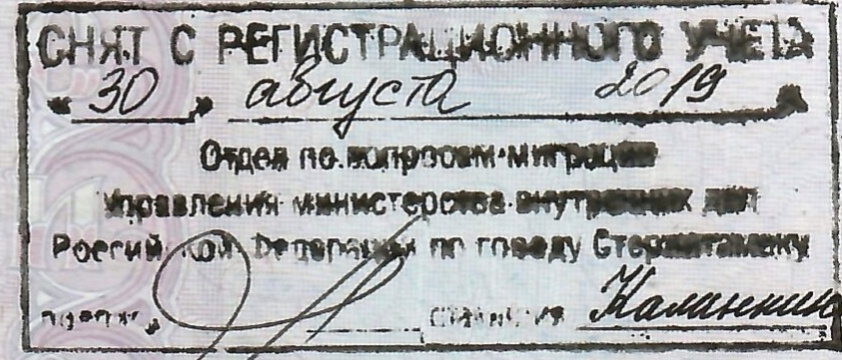 СНЯТ С РЕГИСТРАЦИОННОГО УЧЕТА
" 30 " августа 2019
Отдел по вопросам миграции
Управления министерства внутренних дел
Российской Федерации по городу Стерлитамаку
подпись